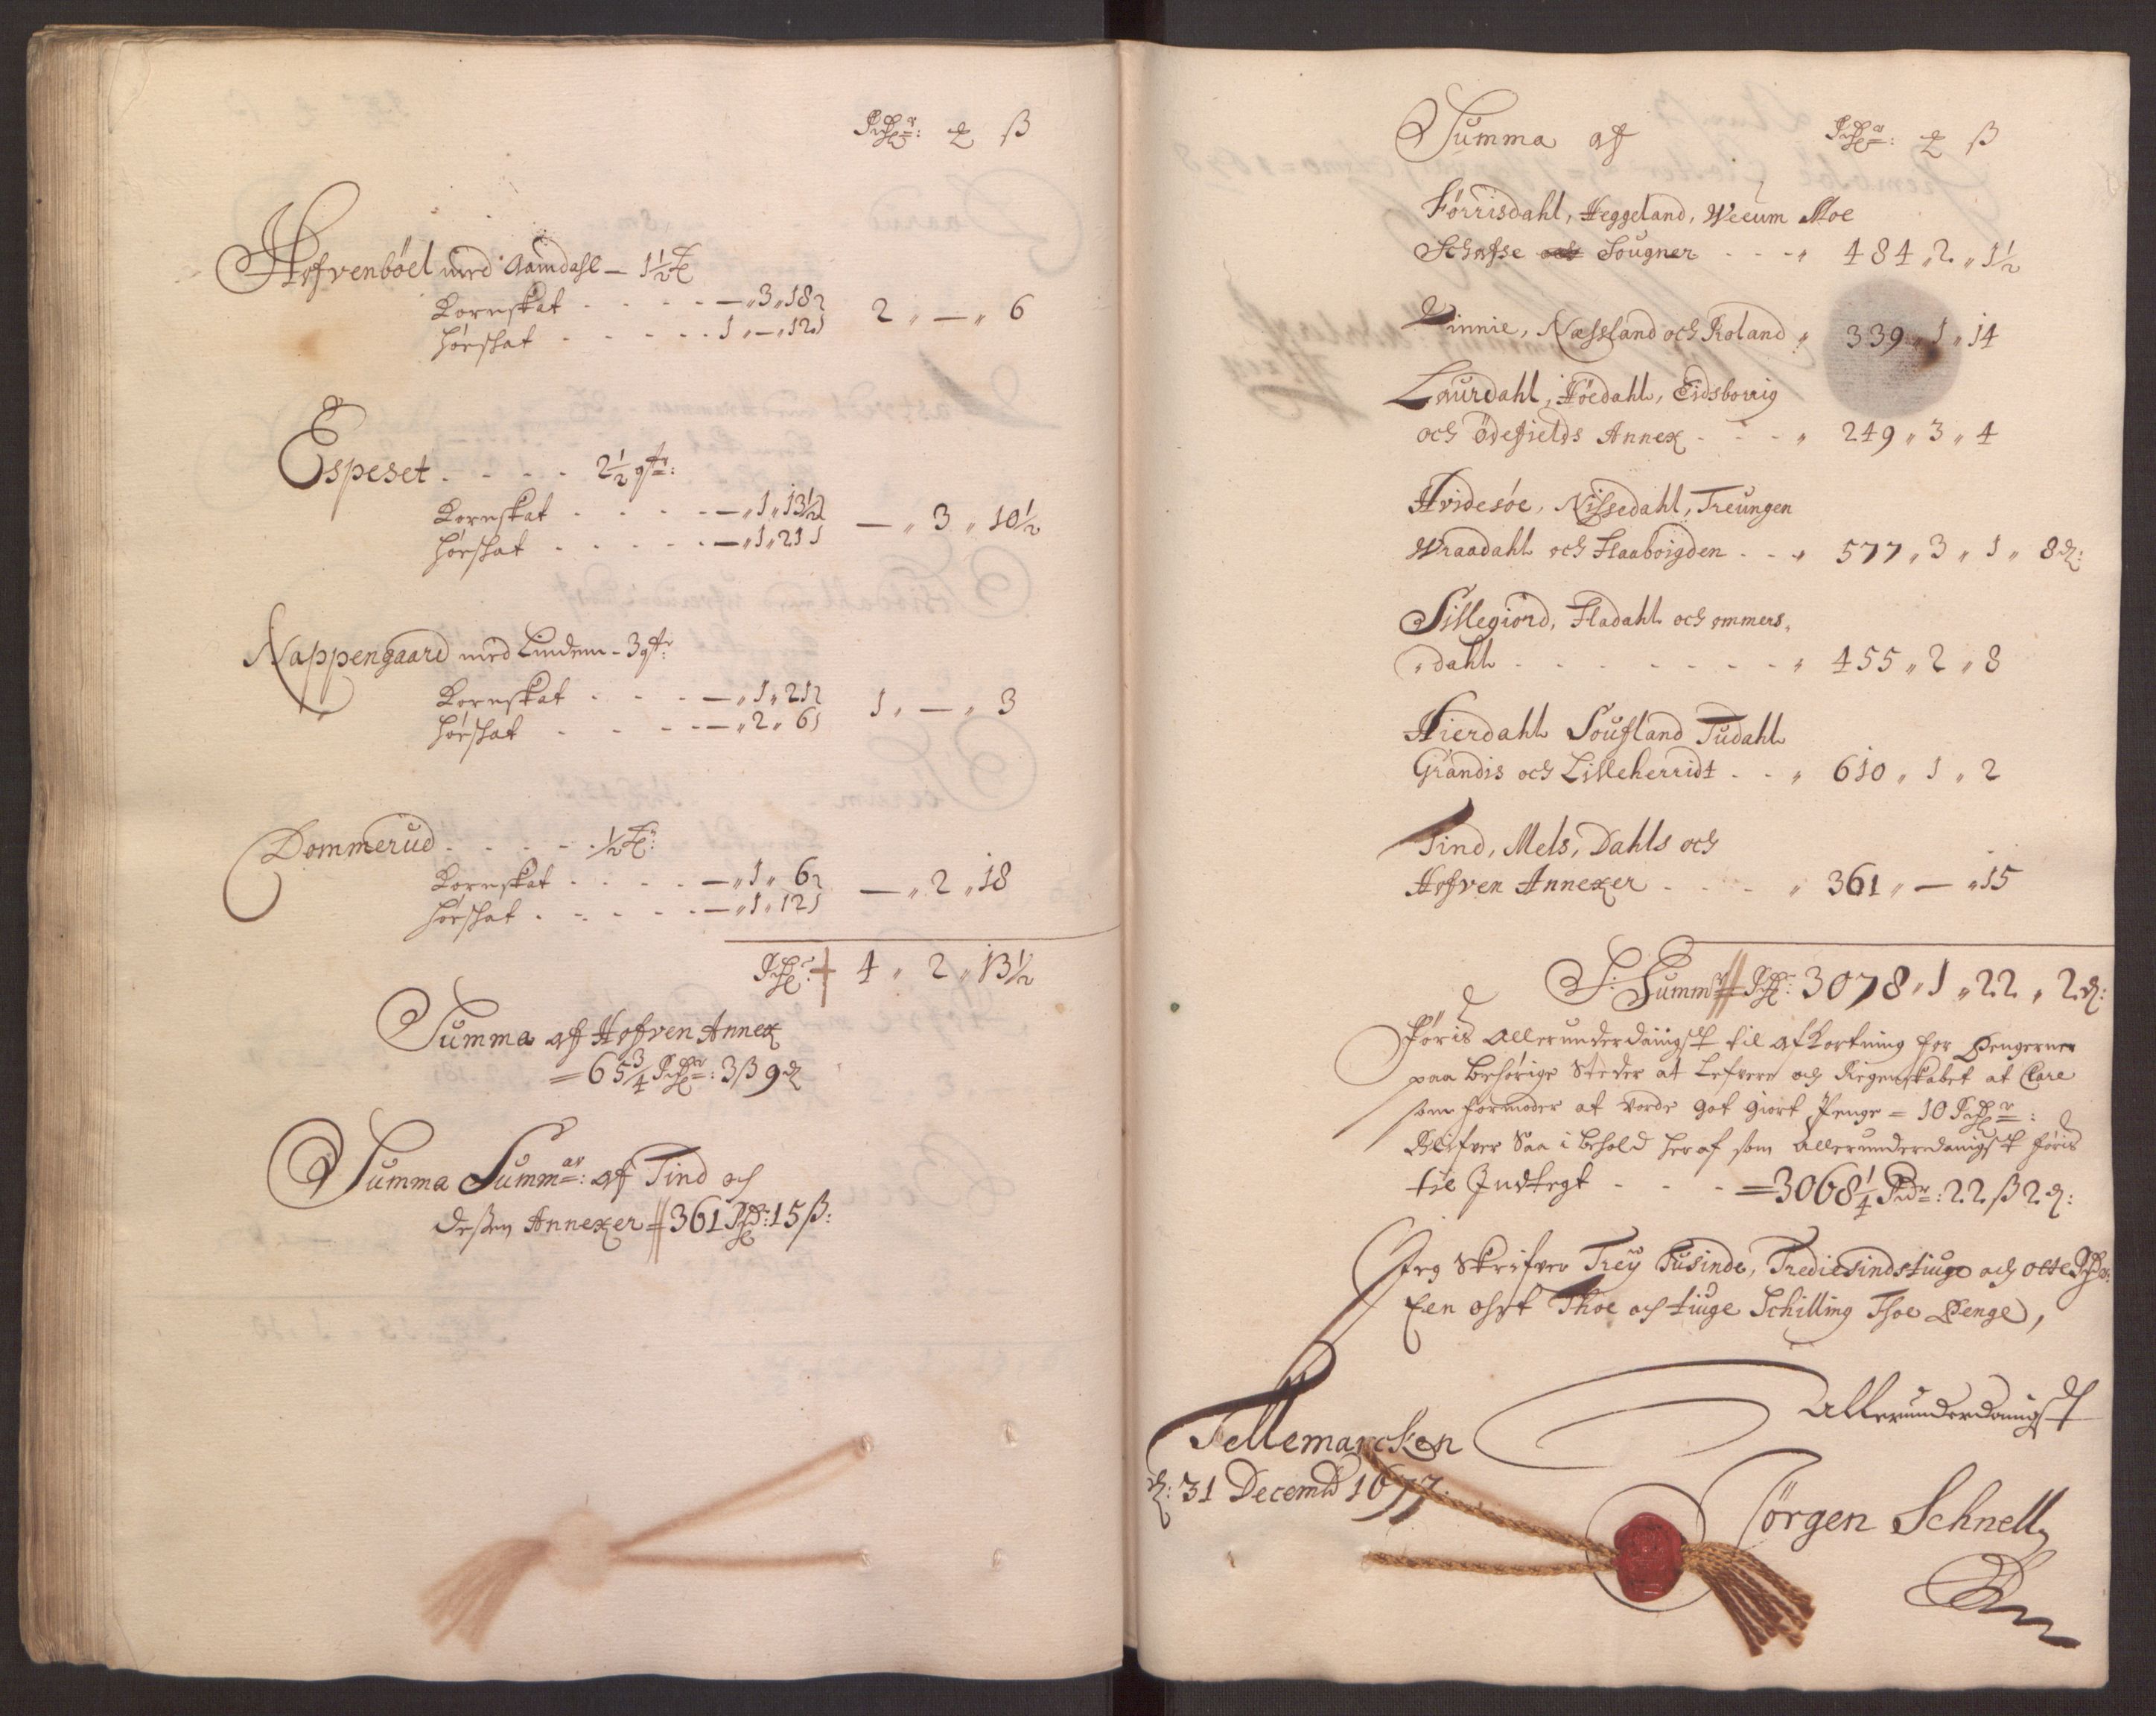 Rdr: ℥ ß
Hofvenböel med Aamdahl — 1½ H
Kornskat - - - - — „ 3 „ 18
2 „ — „ 6
Hórskat - - - - 1 „ — „ 12
Espeset - - - - 2½ gtr:
Kornskat - - - - — „ 1 „ 13½
— „ 3 „ 10½
Hórskat - - - - — „ 1 „ 21
Nappengaard med Lindem - 3 gtr:
Kornskat - - - — „ 1 „ 21
1 „ — „ 3
Hórskat - - - — „ 2 „ 6
Dommerud - - - - ½ H:
Kornskat - - - - — „ 1 „ 6
— „ 2 „ 18
Hórskat - - - - — „ 1 „ 12
Rdr: 4 „ 2 „ 13½
Summa af Hofven Annex
= 65¾ Rdr: 3 ß 9 ₰
Summa Summar: af Tind och
deßen Annexer = 361 Rdr: 15 ß:
Summa af Rdr: ℥ ß
Förrisdahl, Heggeland, Weeum Moe
Schafse och Sougner - - - „ 484 „ 2 „ 1½
Vinnie, Næssland och Roland „ 339 „ 1 „ 14
Laurdahl, Höedahl, Eidsborrig
och Ödefields Annex - - - „ 249 „ 3 „ 4
Hvidesöe, Nissedahl, Treungen
Wraadahl och Flaaboigden - - „ 577 „ 3 „ 1 „ 8 ₰:
Sillegiórd, Fladahl och ommers„
„dahl - - - - - - - „ 455 „ 2 „ 8
Hierdahl Soufland Tudahl
Grandis och Lilleherridt - - „ 610 „ 1 „ 2
Tind, Mels, Dahls och
Hofven Annexer - - - „ 361 „ — „ 15
S: Summr Rdr: 3078 „ 1 „ 22 „ 2 ₰:
Föris Allerunderdánigst til afkortning for Pengerne
paa behörige Steder at Lefvere och Regenskabet at Clare
som formoder at vorde got giort Penge = 10 Rdr:
Blifver Saa i behold her af som allerunderdanigst Föris
til Indtegt - - - = 3068¼ Rdr: 22 ß 2 ₰:
Jeg Skrifver Trey Tusinde, Trediesindstiuge och otte Rdr:
Een ohrt Thoe och tiuge Schilling Thoe Penge,
Allerunderdanigst
Tellemarcken
₰: 31 Decembr 1677.
Jörgen Schnell